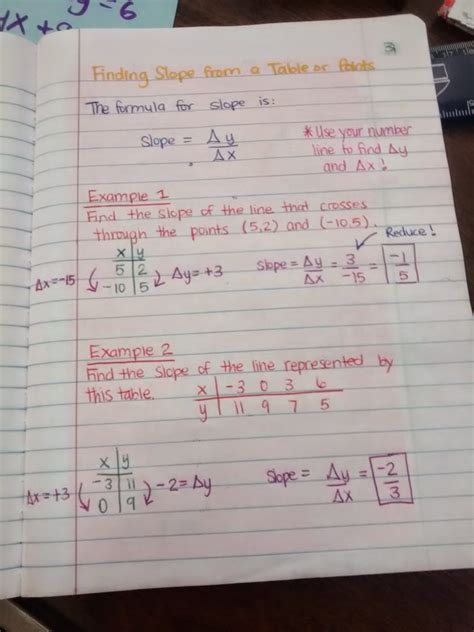 y=6
Finding Slope from a Table or Points
The formula for slope is:
Slope = Δy/Δx
*Use your number
line to find Δy
and Δx!
Example 1
Find the slope of the line that crosses
through the points (5,2) and (-10,5).
Reduce!
x y
5 2
-10 5
Δx=-15
Δy=+3
Slope = Δy/Δx = 3/-15 = -1/5
Example 2
Find the slope of the line represented by
this table.
x -3 0 3 6
y 11 9 7 5
x y
-3 11
0 9
Δx=+3
-2=Δy
Slope = Δy/Δx = -2/3